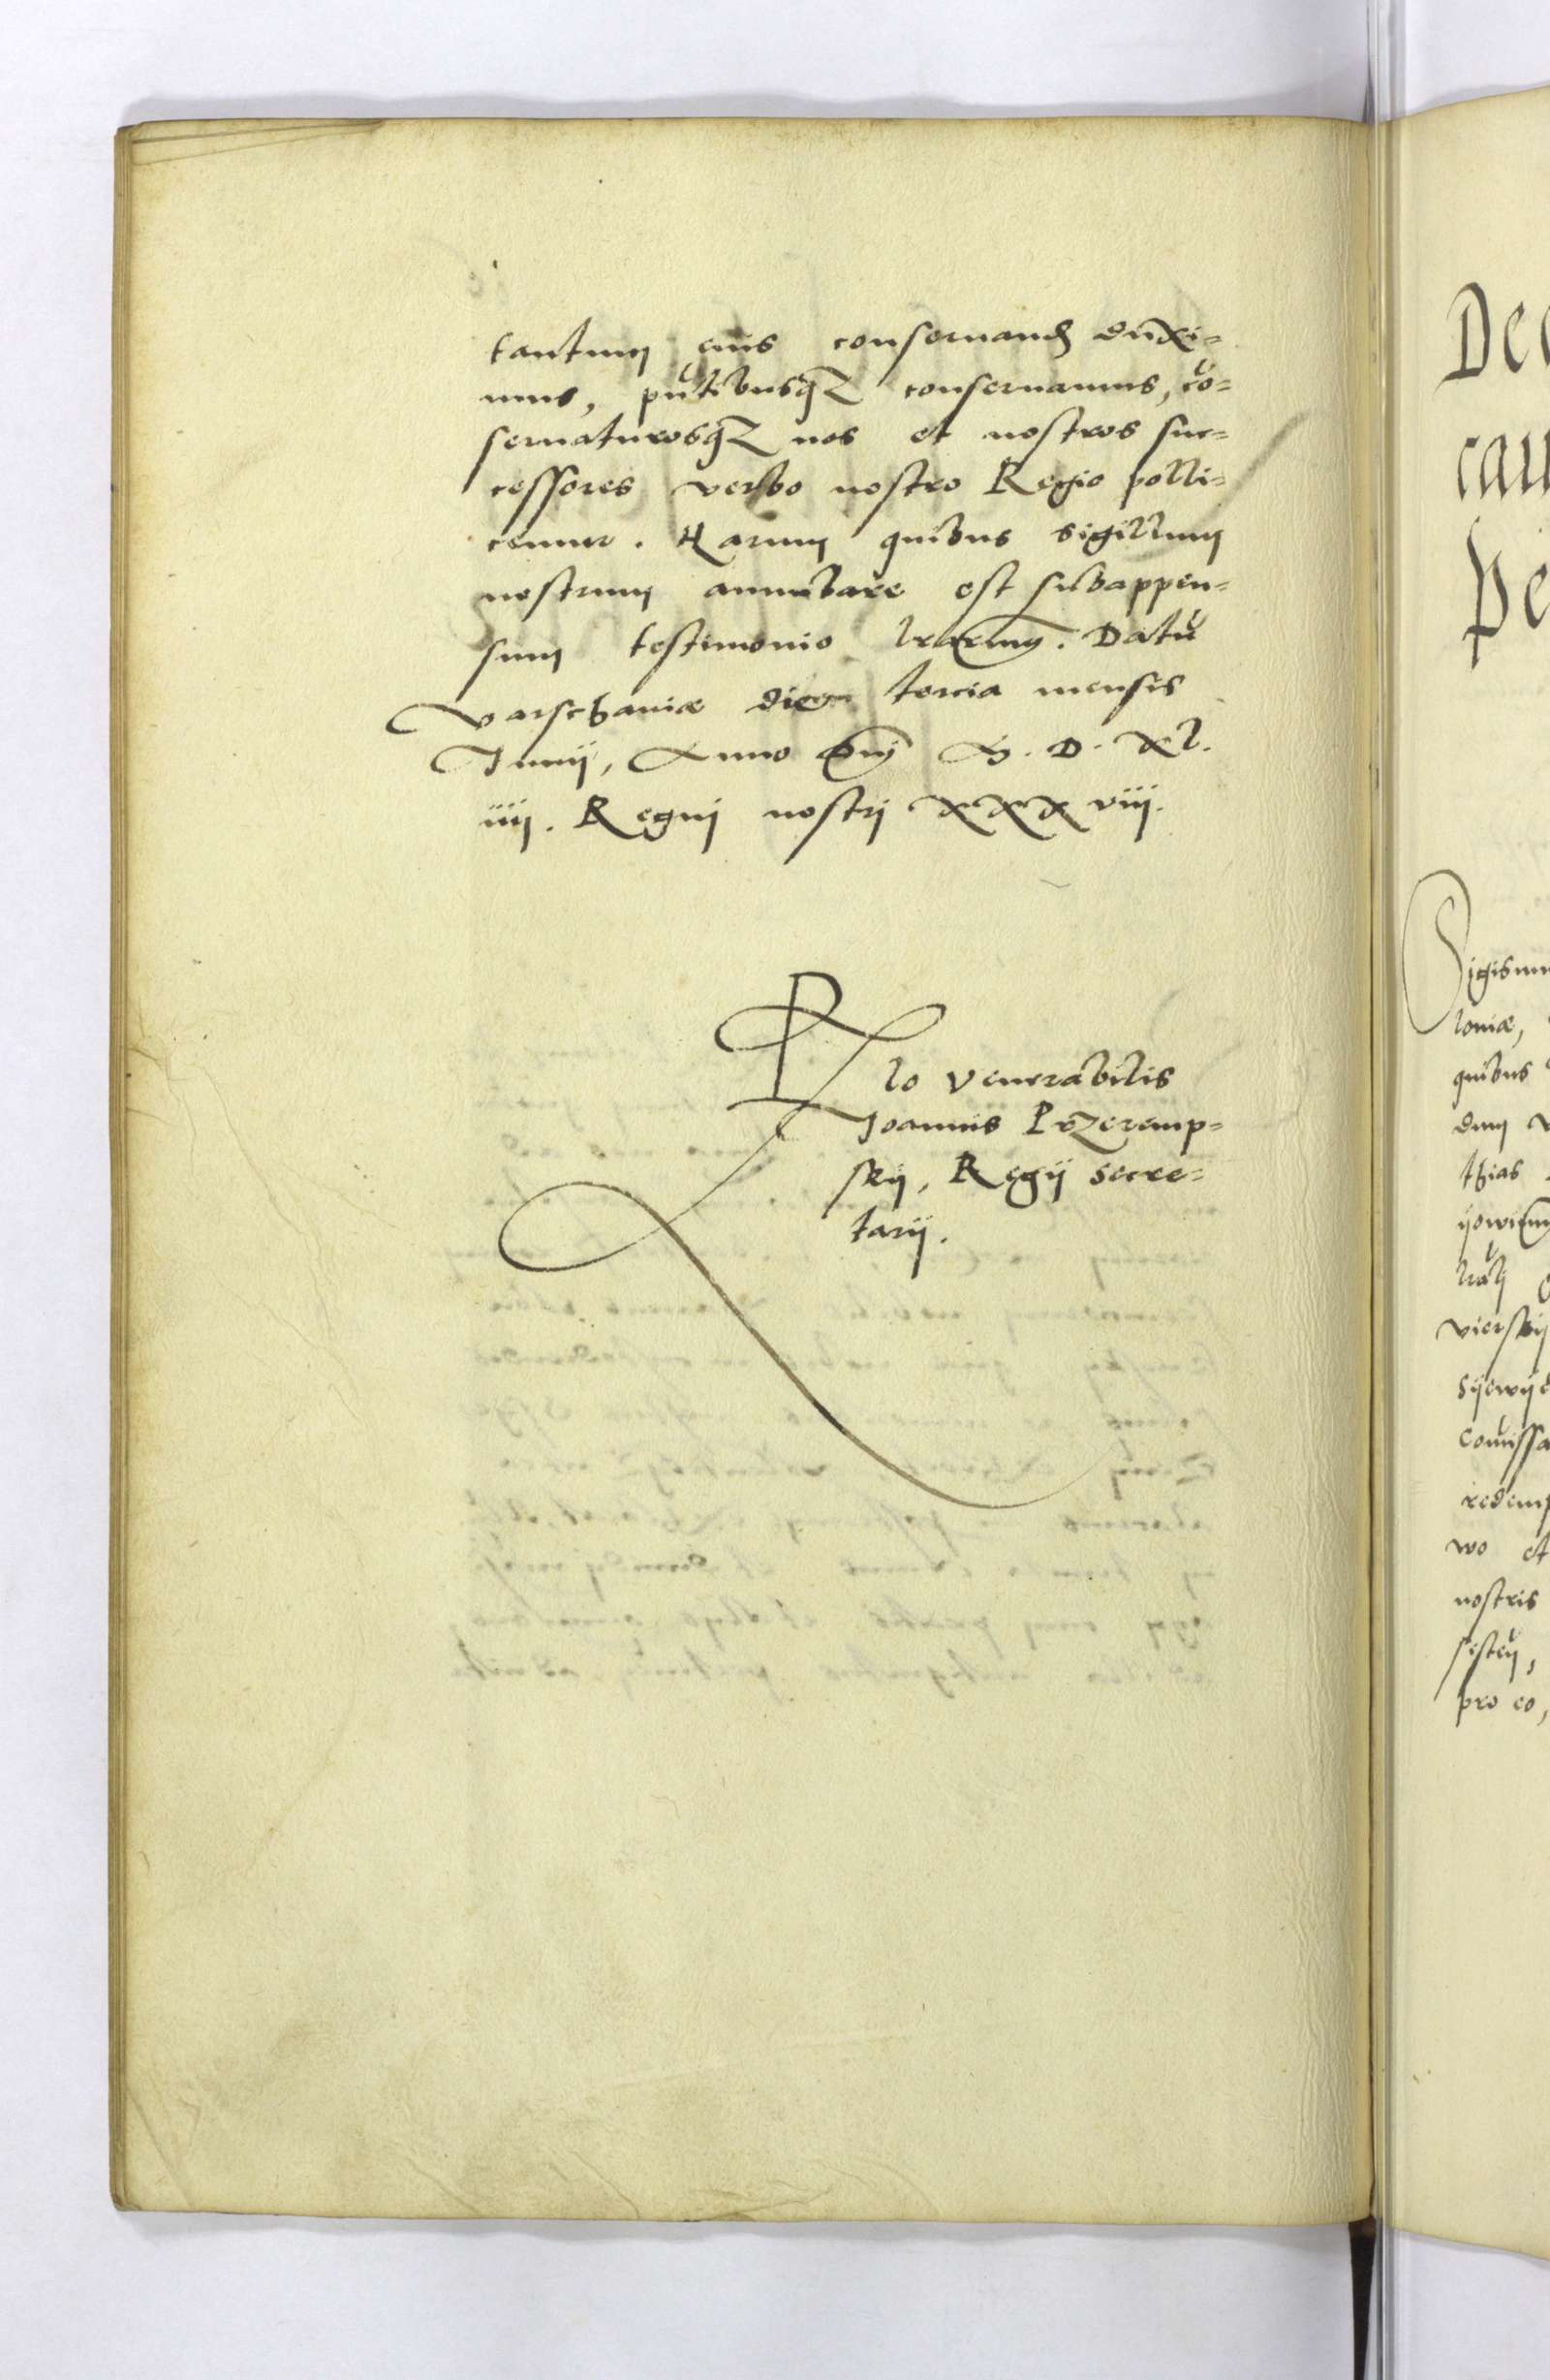 tantum eius conseruand duxi=
mus, pntibusq₃ conseruamus, cō=
seruaturosq₃ nos et nostros suc=
cessores verbo nostro Regio polli=
cemur. Harum quibus sigillum
nostrum annulare est subappen=
sum testimonio lrarum. Datū
Varschauiæ die tercia mensis
Junij, Anno Dnj M. D. Xl.
iiij. Regnj nostrj XXXviij.
Rlo Venerabilis
Joannis Przeremp=
skij, Regij secre=
tarij.
Sigismu
loniæ,
quibus
dum
thias
lrāl
vierskij
Comissa
redemp
wo et
nostris
sisteȳ,
pro eo,